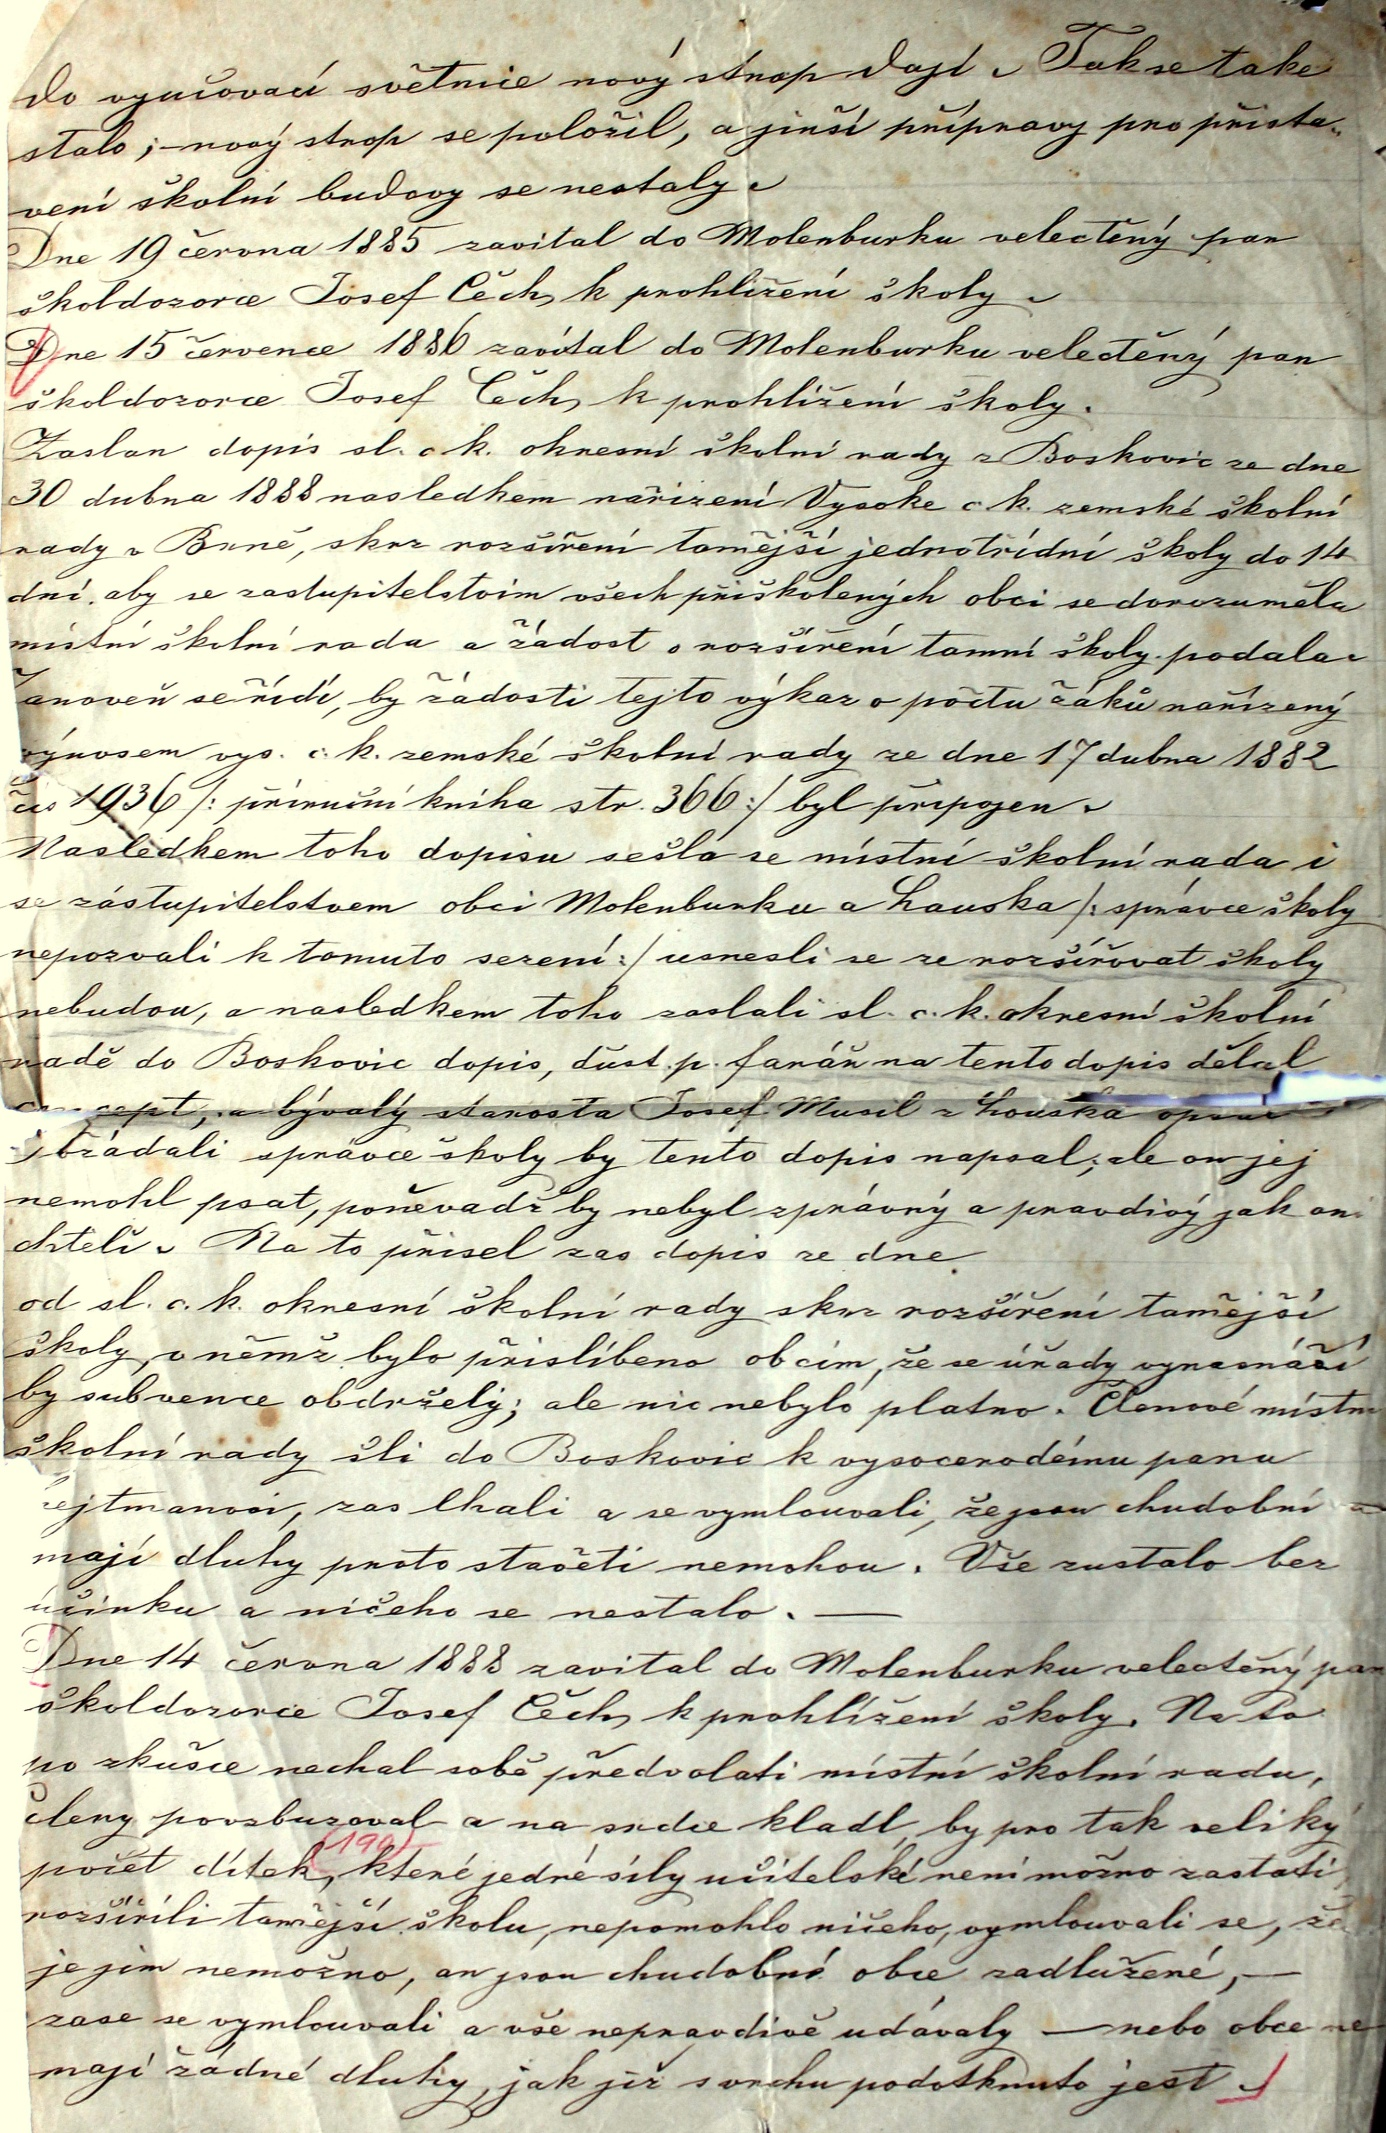 do vyučovací světnice nový strop dají. Tak se take
stalo; – nový strop se položil, a jinší přípravy pro přista„
vení školní budovy se nestaly.
Dne 19 června 1885 zavital do Molenburku velectěný pan
školdozorce Josef Čech, k prohlížení školy.
Dne 15 července 1886 zavítal do Molenburku velectěný pan
školdozorce Josef Čech, k prohlížení školy.
Zaslan dopis sl. c. k. okresní školní rady z Boskovic ze dne
30 dubna 1888 nasledkem nařizení Vysoke c. k. zemské školní
rady v Brně, skrz rozšíření tamější jednotřídní školy do 14
dní. aby se zastupitelstvim všech přiškolených obci se dorozuměla
místní školní rada a žádost o rozšíření tamní školy podala.
Zanoveň se řídí, by žádosti tejto výkaz o počtu žáků nařízený
výnosem vys. c. k. zemské školní rady ze dne 17 dubna 1882
čis 1936 /: příruční kniha str. 366 :/ byl připojen.
Nasledkem toho dopisu sešla se místní školní rada i
se zástupitelstvem obci Molenburku a Lauska /: správce školy
nepozvali k tomuto sezení :/ usnesli se ze rozšířovat školy
nebudou, a nasledkem toho zaslali sl. c. k. okresní školní
radě do Boskovic dopis, dust. p. farář na tento dopis dělal
concept, a bývalý starosta Josef Musil z Louska
žádali správce školy by tento dopis napsal; ale on jej
nemohl psat, poněvadž by nebyl zprávný a pravdivý jak oni
chteli. Na to přisel zas dopis ze dne
od sl. c. k. okresní školní rady skrz rozšíření tamější
školy, v němž bylo přislíbeno obcím, že se úřady vynasnáží
by subvence obdržely; ale nic nebylo platno. Členové místní
školní rady šli do Boskovic k vysocerodému panu
hejtmanovi, zas lhali a se vymlouvali, že jsou chudobní a
mají dluhy proto stavěti nemohou. Vše zustalo bez
účinku a ničeho se nestalo. —
Dne 14 června 1888 zavital do Molenburku velectěný pan
školdozorce Josef Čech, k prohlížení školy. Na to
po zkušce nechal sobě předvolati místní školní radu,
členy povzbuzoval a na srdce kladl, by pro tak veliký
počet dítek, (190) které jedné síly učitelské není možno zastati,
rozšírili tamější školu, nepomohlo ničeho, vymlouvali se, že
je jim nemožno, an jsou chudobné obce zadlužené, —
zase se vymlouvali a vše nepravdivě udávaly — nebo obce ne
mají žádné dluhy, jak již svrchu podotknuto jest.